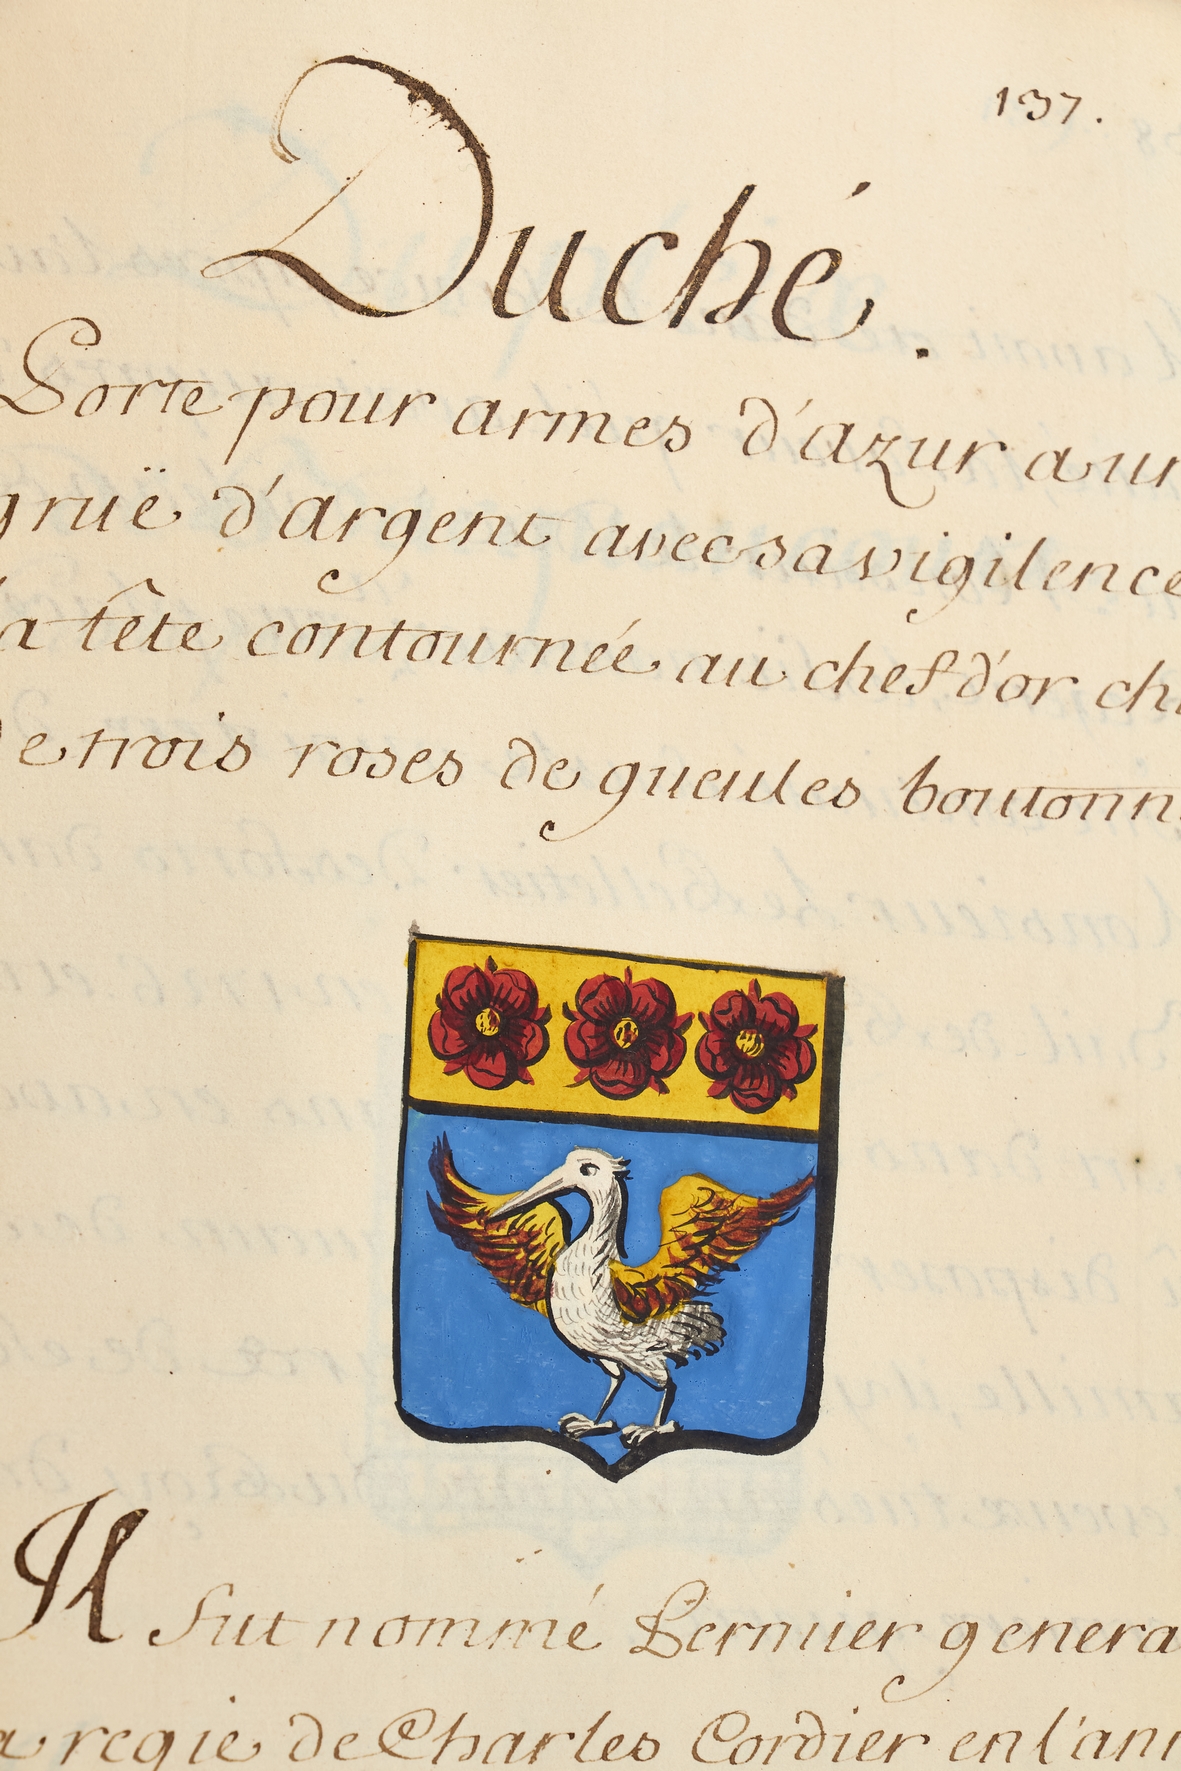 137.
Duché.
Porte pour armes d'azur a un
gruë d'argent avec sa vigilence
la tête contournée au chef d'or ch
de trois roses de gueules boutonn
Il fut nommé Fermier genera
a regie de Charles Cordier en l'ann